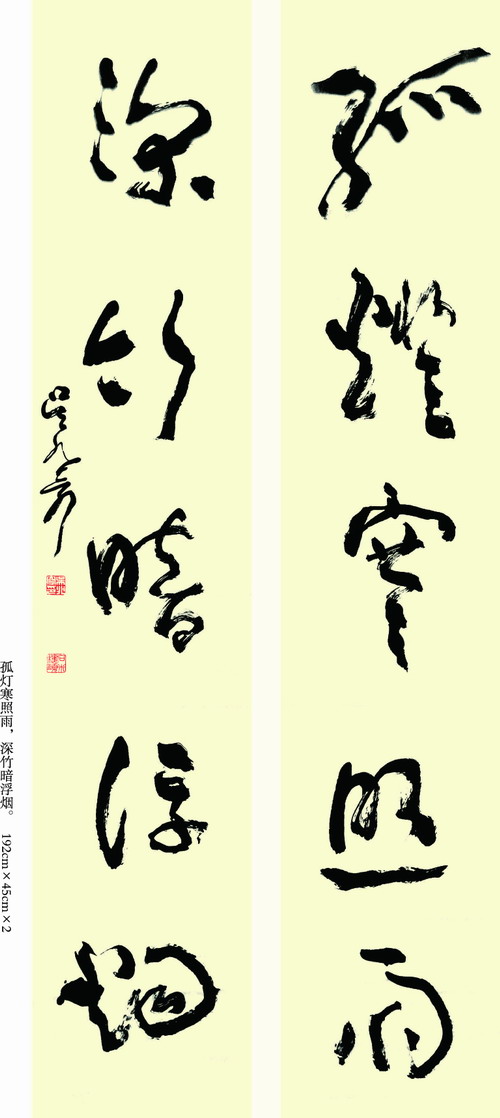 孤燈寒照雨
深竹暗浮烟
孤灯寒照雨，深竹暗浮烟。 192cm×45cm×2